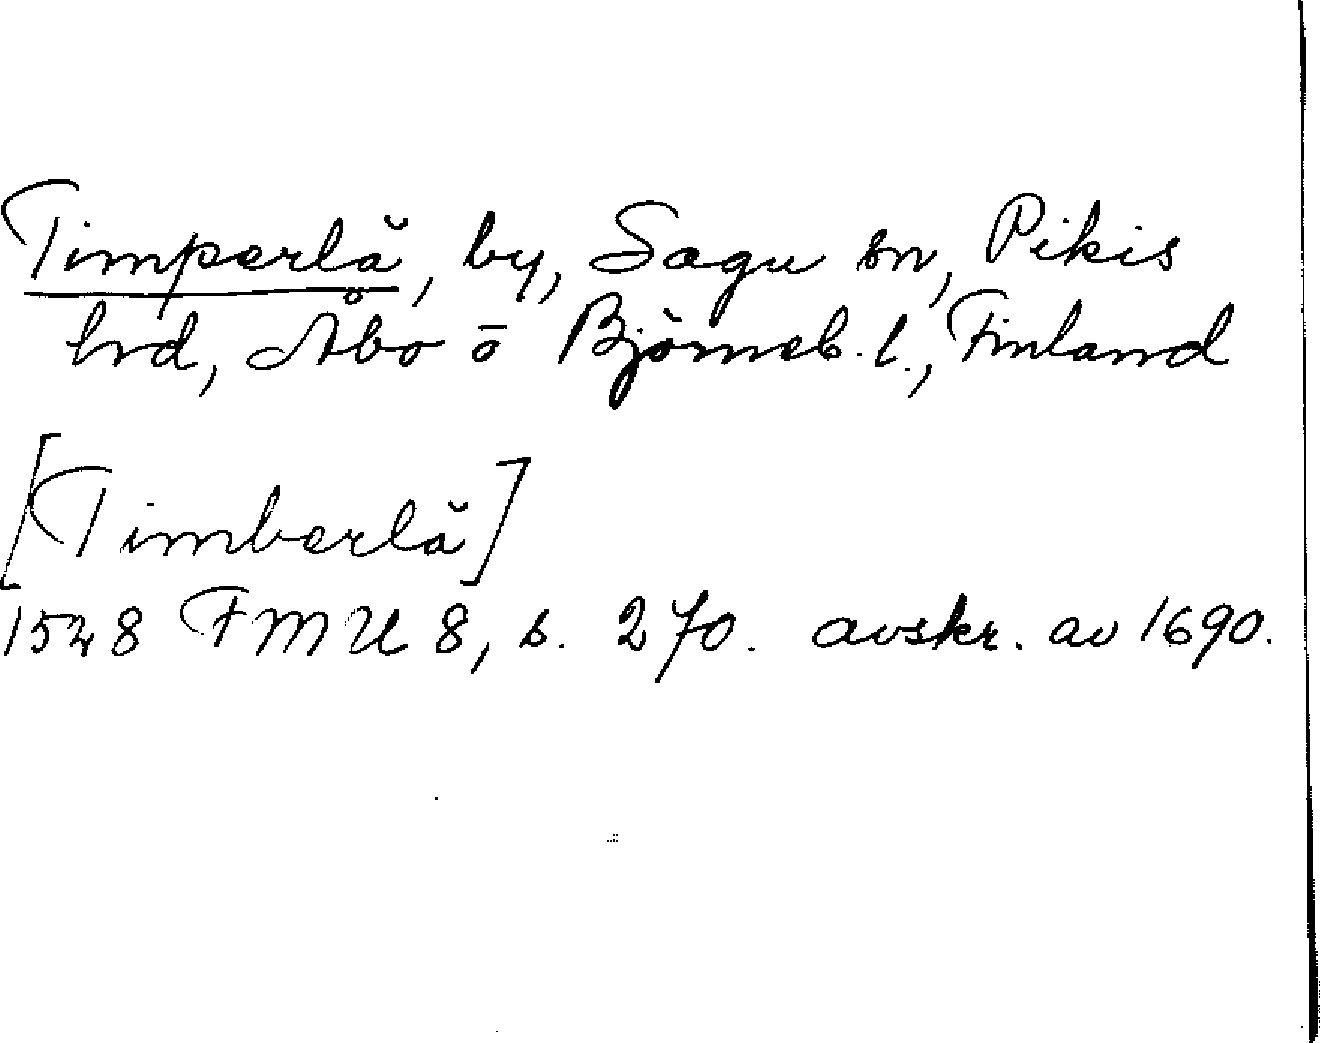 Timperlä, by, Sagu sn, Pikis
hrd, Åbo o Björneb. l., Finland
[Timberlä]
1548 FMU 8, s. 270. avskr. av 1690.